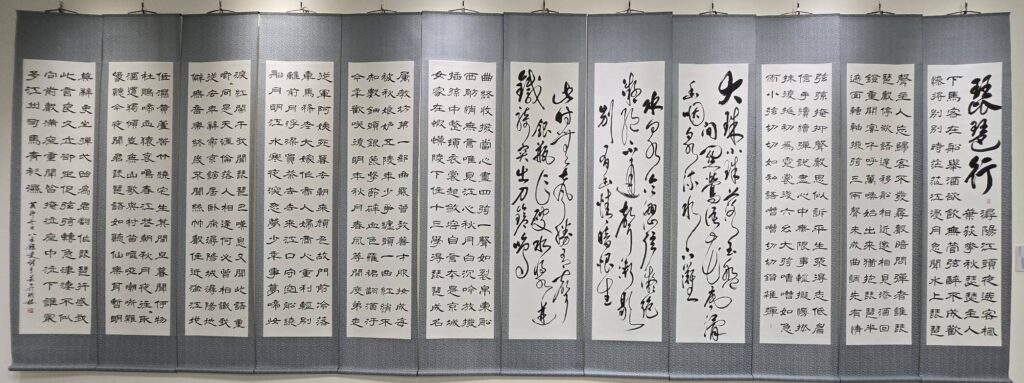 琵琶行
潯陽江頭夜送客楓
葉荻秋瑟瑟主人
下馬客在船舉酒欲飲無管弦醉不成歡
慘將別別時茫茫江浸月忽聞水上琵琶
聲主人忘歸客不發尋聲暗問彈者誰琵
琶聲停欲語遲移船相近邀相見添酒回
燈重開宴千呼萬喚始出來猶抱琵琶半
遮面轉軸撥弦三兩聲未成曲調先有情
弦弦掩抑聲聲思似訴平生不得志低眉
信手續續彈說盡心中無限事輕攏慢撚
抹復挑初為霓裳後六幺大弦嘈嘈如急
雨小弦切切如私語嘈嘈切切錯雜彈
大珠小珠落玉盤
間關鶯語花底滑
幽咽泉流水下灘
水泉冷澀弦凝絕
凝絕不通聲漸歇
別有幽情暗恨生
此時無聲勝有聲
銀瓶乍破水漿迸
鐵騎突出刀鎗鳴
曲終收撥當心畫四弦一聲如裂帛東船
西舫悄無言唯見江心秋月白沉吟放撥
插弦中整頓衣裳起斂容自言本是京城
女家在蝦蟆陵下住十三學得琵琶成名
屬教坊第一部曲罷曾教善才服妝成每
被秋娘妒五陵年少爭纏頭一曲紅綃不
知數鈿頭銀篦擊節碎血色羅裙翻酒污
今年歡笑復明年秋月春風等閒度弟走
從軍阿姨死暮去朝來顏色故門前冷落
車馬稀老大嫁作商人婦商人重利輕別
離前月浮梁買茶去去來江口守空船繞
船月明江水寒夜深忽夢少年事夢啼妝
淚紅闌干我聞琵琶已嘆息又聞此語重
唧唧同是天涯淪落人相逢何必曾相識我
從去年辭帝京謫居臥病潯陽城潯陽地
僻無音樂終歲不聞絲竹聲住近湓江地
低濕黃蘆苦竹繞宅生其間旦暮聞何物
杜鵑啼血猿哀鳴春江花朝秋月夜往往取
酒還獨傾豈無山歌與村笛嘔啞嘲哳難
為聽今夜聞君琵琶語如聽仙樂耳暫明
莫辭更坐彈一曲為君翻作琵琶行感我
此言良久立卻坐促弦弦轉急淒淒不似
向前聲滿座重聞皆掩泣座中泣下誰最
多江州司馬青衫濕